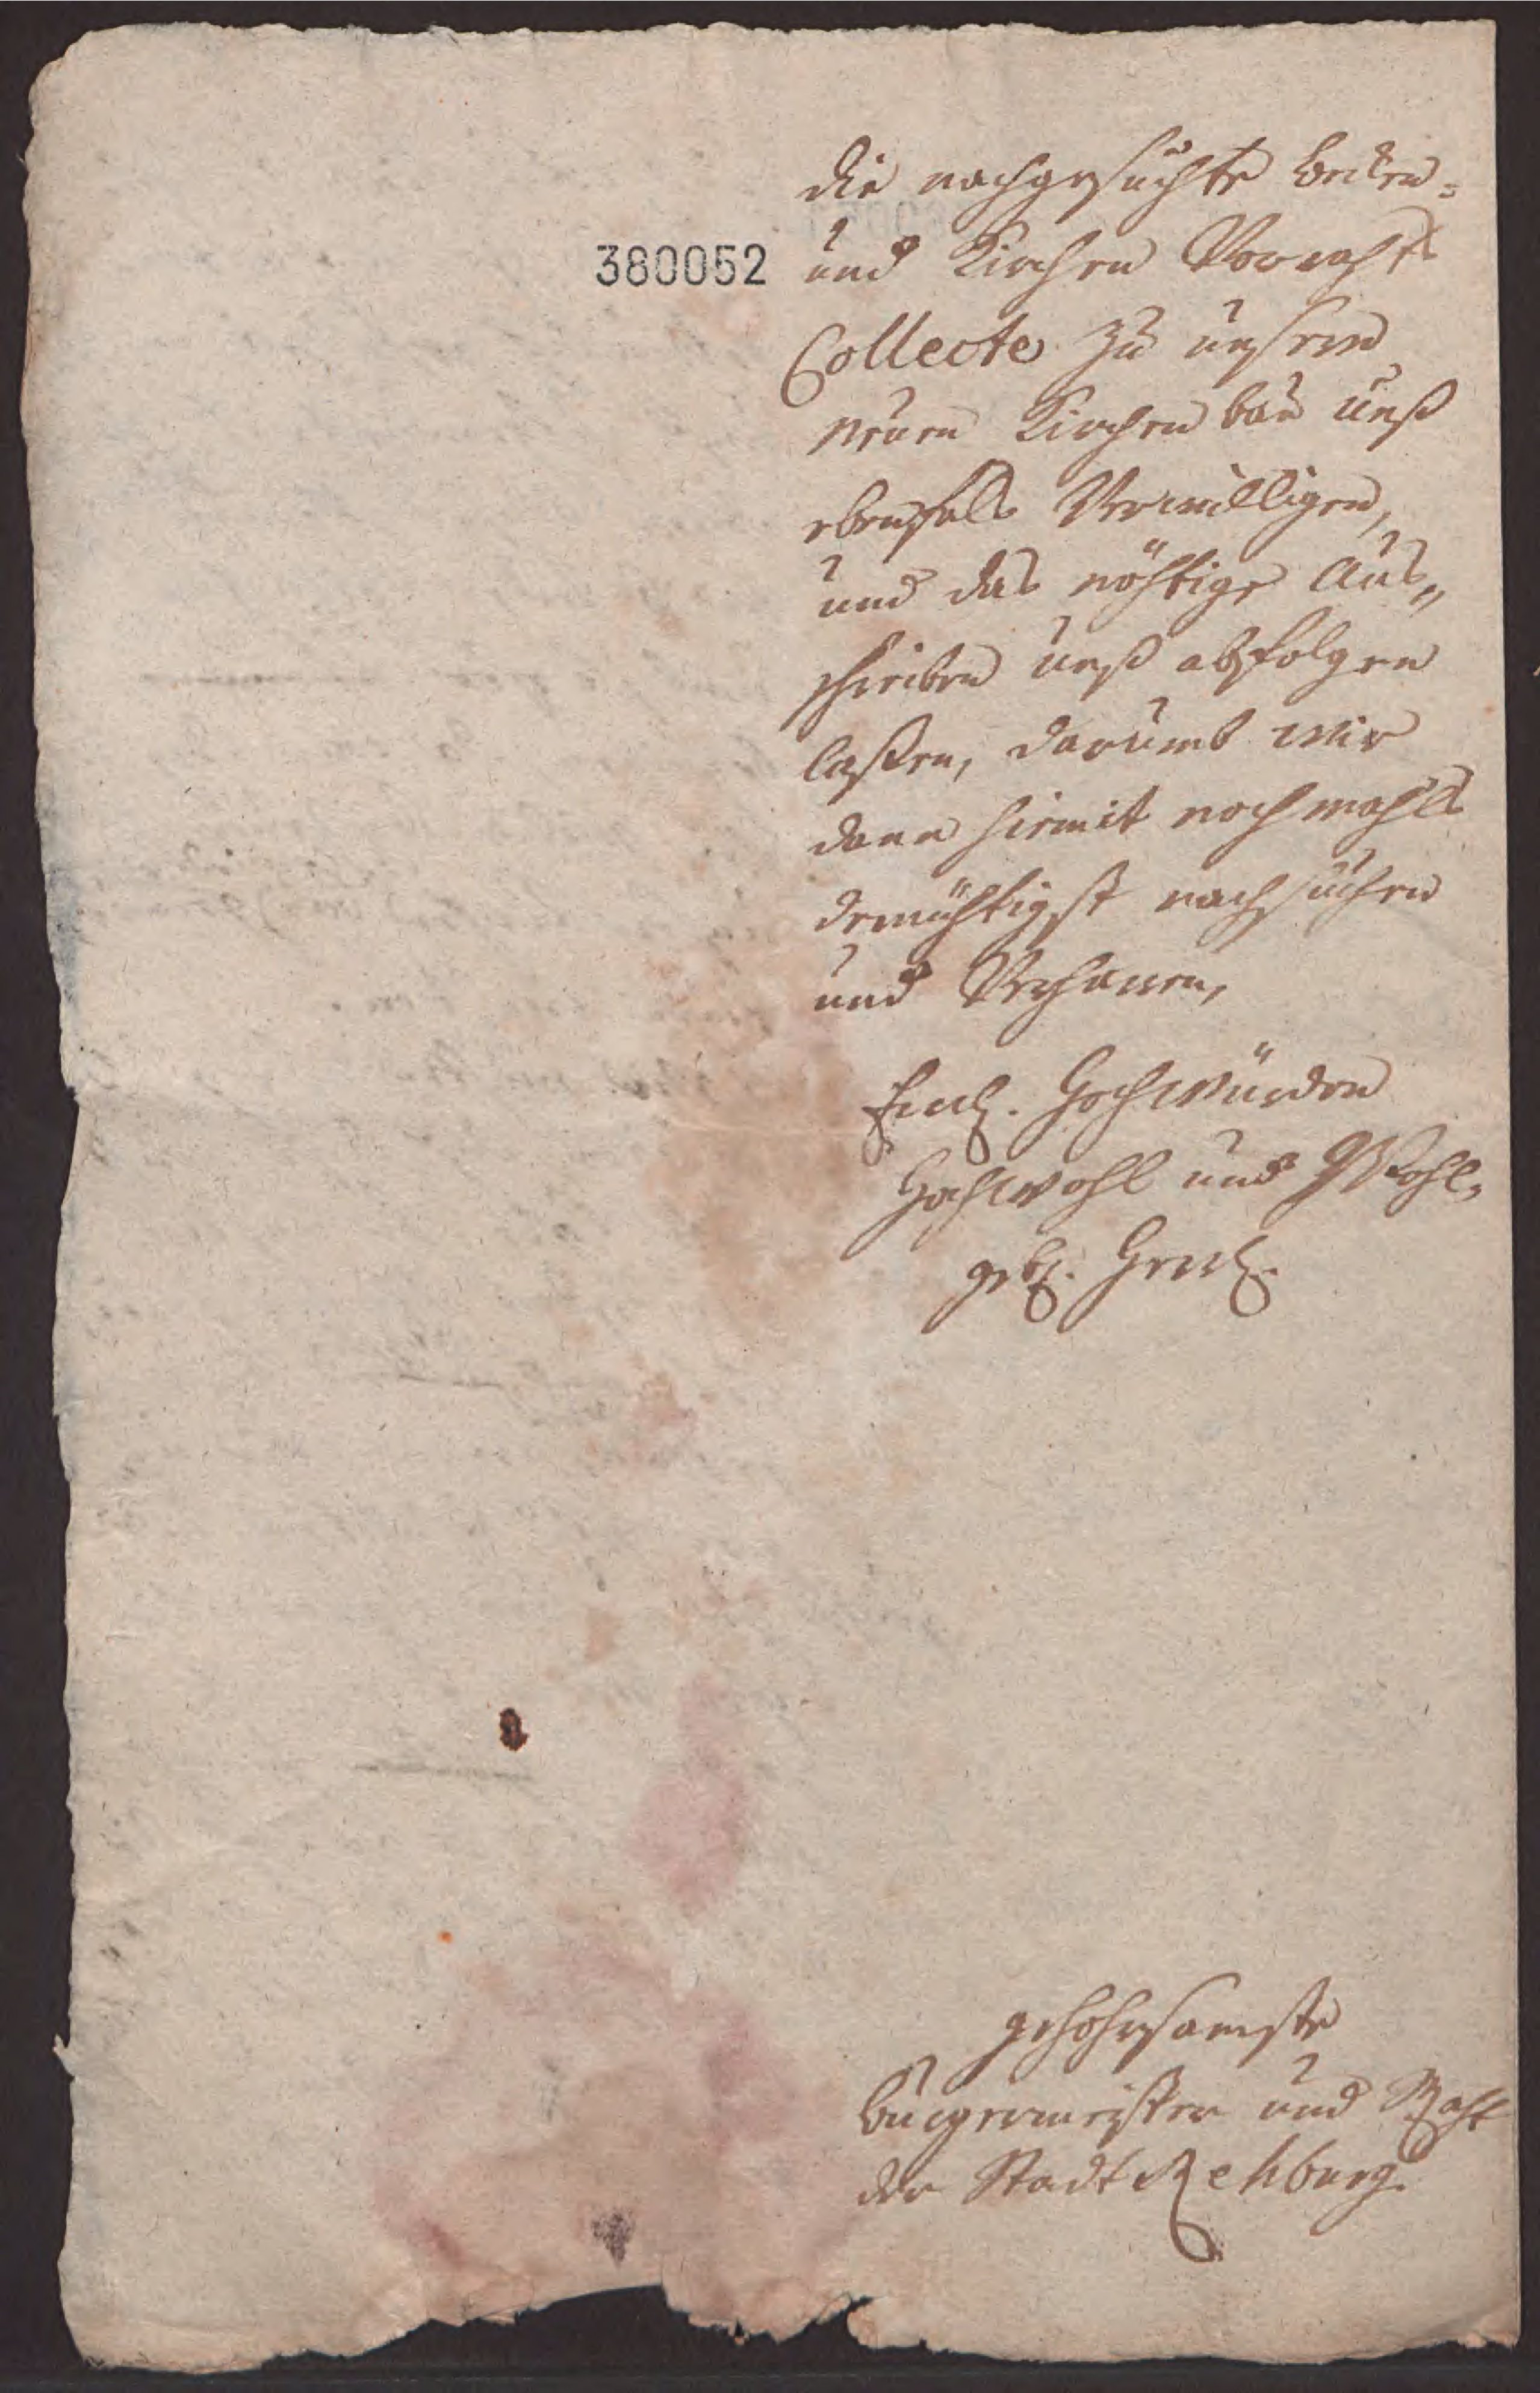 die nachgesuchte Becken-
380052
und Kirchen Vorrahts
Collecte zu unserm
neuen Kirchen bau unß
ebenfals Verwilligen,
und das nöhtige Aus„
schreiben unß abfolgen
laßen, darumb wir
dann hiemit nochmahls
demühtigst nachsuchen
und Verharren,
Hochwürden
Hochwohl und Wohl-
geb.
gehohrsamste
Bürgermeister und Raht
der Stadt Rehburg.